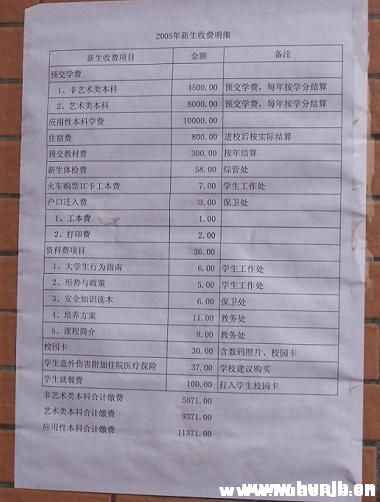 2005年新生收费明细
新生收费项目 金额 备注
预交学费
1、非艺术类本科 4500.00 预交学费，每年按学分结算
2、艺术类本科 8000.00 预交学费，每年按学分结算
应用性本科学费 10000.00
住宿费 800.00 进校后按实际结算
预交教材费 300.00 按年结算
新生体检费 58.00 综管处
火车购票IC卡工本费 7.00 学生工作处
户口迁入费 3.00 保卫处
1、工本费 1.00
2、打印费 2.00
资料费项目 36.00
1、大学生行为指南 6.00 学生工作处
2、形势与政策 5.00 学生工作处
3、安全知识读本 6.00 保卫处
4、培养方案 11.00 教务处
5、课程简介 8.00 教务处
校园卡 30.00 含数码照片、校园卡
学生意外伤害附加住院医疗保险 37.00 学校建议购买
学生就餐费 100.00 打入学生校园卡
非艺术类本科合计缴费 5871.00
艺术类本科合计缴费 9371.00
应用性本科合计缴费 11371.00